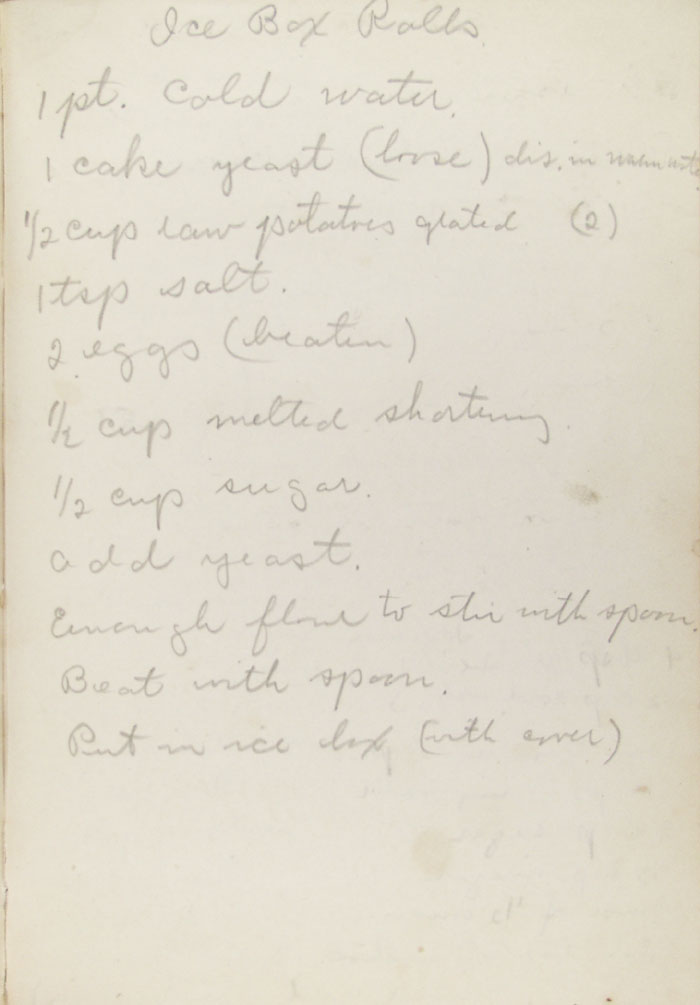 Ice Box Rolls
1 pt. Cold water.
1 cake yeast (loose) dis. in warm water
1/2 cup raw potatoes grated (2)
1 tsp salt.
2 eggs (beaten)
1/2 cup melted shortening.
1/2 cup sugar.
add yeast.
Enough flour to stir with spoon.
Beat with spoon.
Put in ice box (with cover)